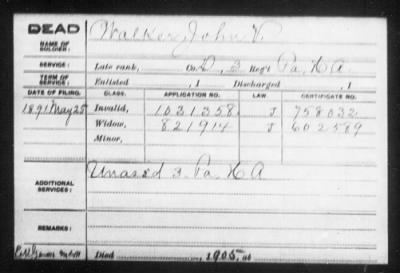 DEAD
NAME OF SOLDIER: Walker, John V.
SERVICE: Late rank, Co. D, 3 Reg't Pa. H A.
TERM OF SERVICE: Enlisted , 1 Discharged , 1
DATE OF FILING. CLASS. APPLICATION NO. LAW. CERTIFICATE NO.
1891 May 25 Invalid, 1031358 J 758032
Widow, 821914 J 602589
Minor,
ADDITIONAL SERVICES: Unased 3. Pa. H A
REMARKS:
Died , 1905, at